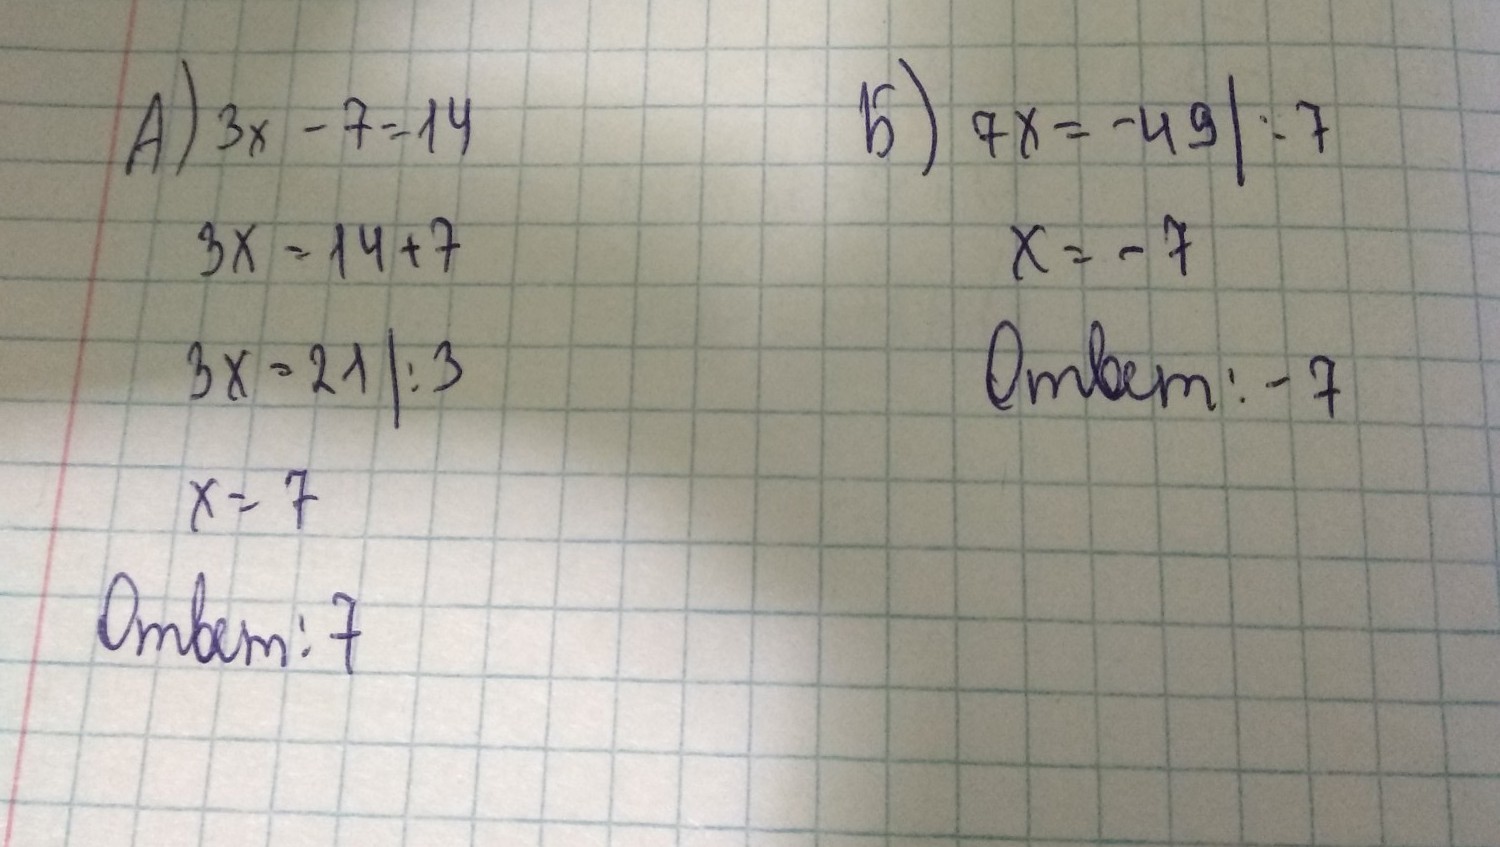 А) 3x - 7 = 14
3x = 14 + 7
3x = 21 | : 3
x = 7
Ответ: 7
Б) 7x = -49 | : 7
x = -7
Ответ: -7